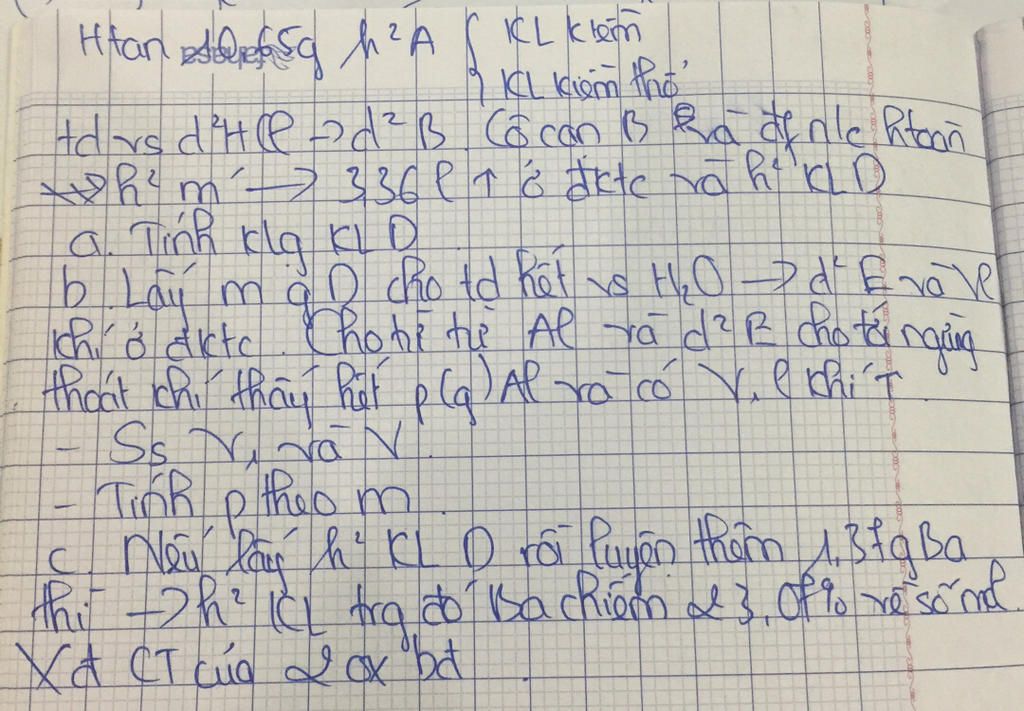 Htan 10,65g h² A { KL kiềm
KL kiềm thổ
td vs d² HCl → d² B. Cô cạn B và đf n/c htoàn
h² m' → 3,36 l ↑ ở đktc và h² KL D
a. Tính klg KL D
b. Lấy m g D cho td hết vs H₂O → d² E và V l
khí ở đktc. Cho từ từ Al và d² E cho tới ngừng
thoát khí thấy hết p(g) Al và có V₁ l khí ↑
- Ss V₁ và V.
- Tính p theo m
c. Nếu lấy h² KL D rồi luyện thêm 1,37g Ba
thì → h² KL trg đó Ba chiếm 23,07% về số mol.
Xđ CT của 2 ox bđ